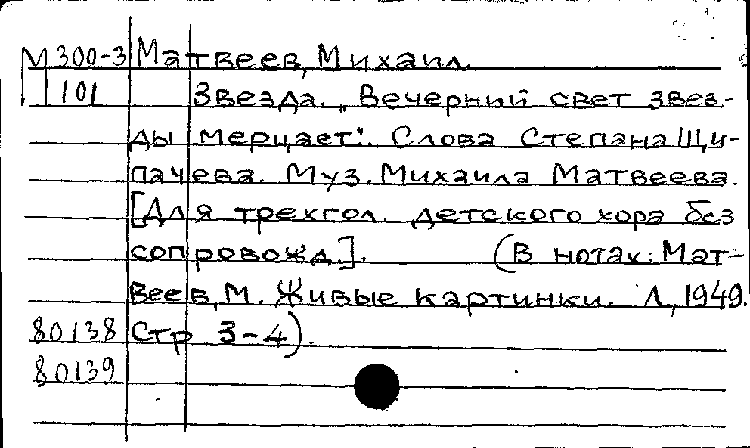 М300-3 Матвеев, Михаил.
101 Звезда. „Вечерний свет звез-
ды мерцает". Слова Степана Щи-
пачева. Муз. Михаила Матвеева.
[Для трехгол. детского хора без
сопровожд.]. (В нотах: Мат-
веев, М. Живые картинки. Л., 1949.
80138 Стр 3-4).
80139